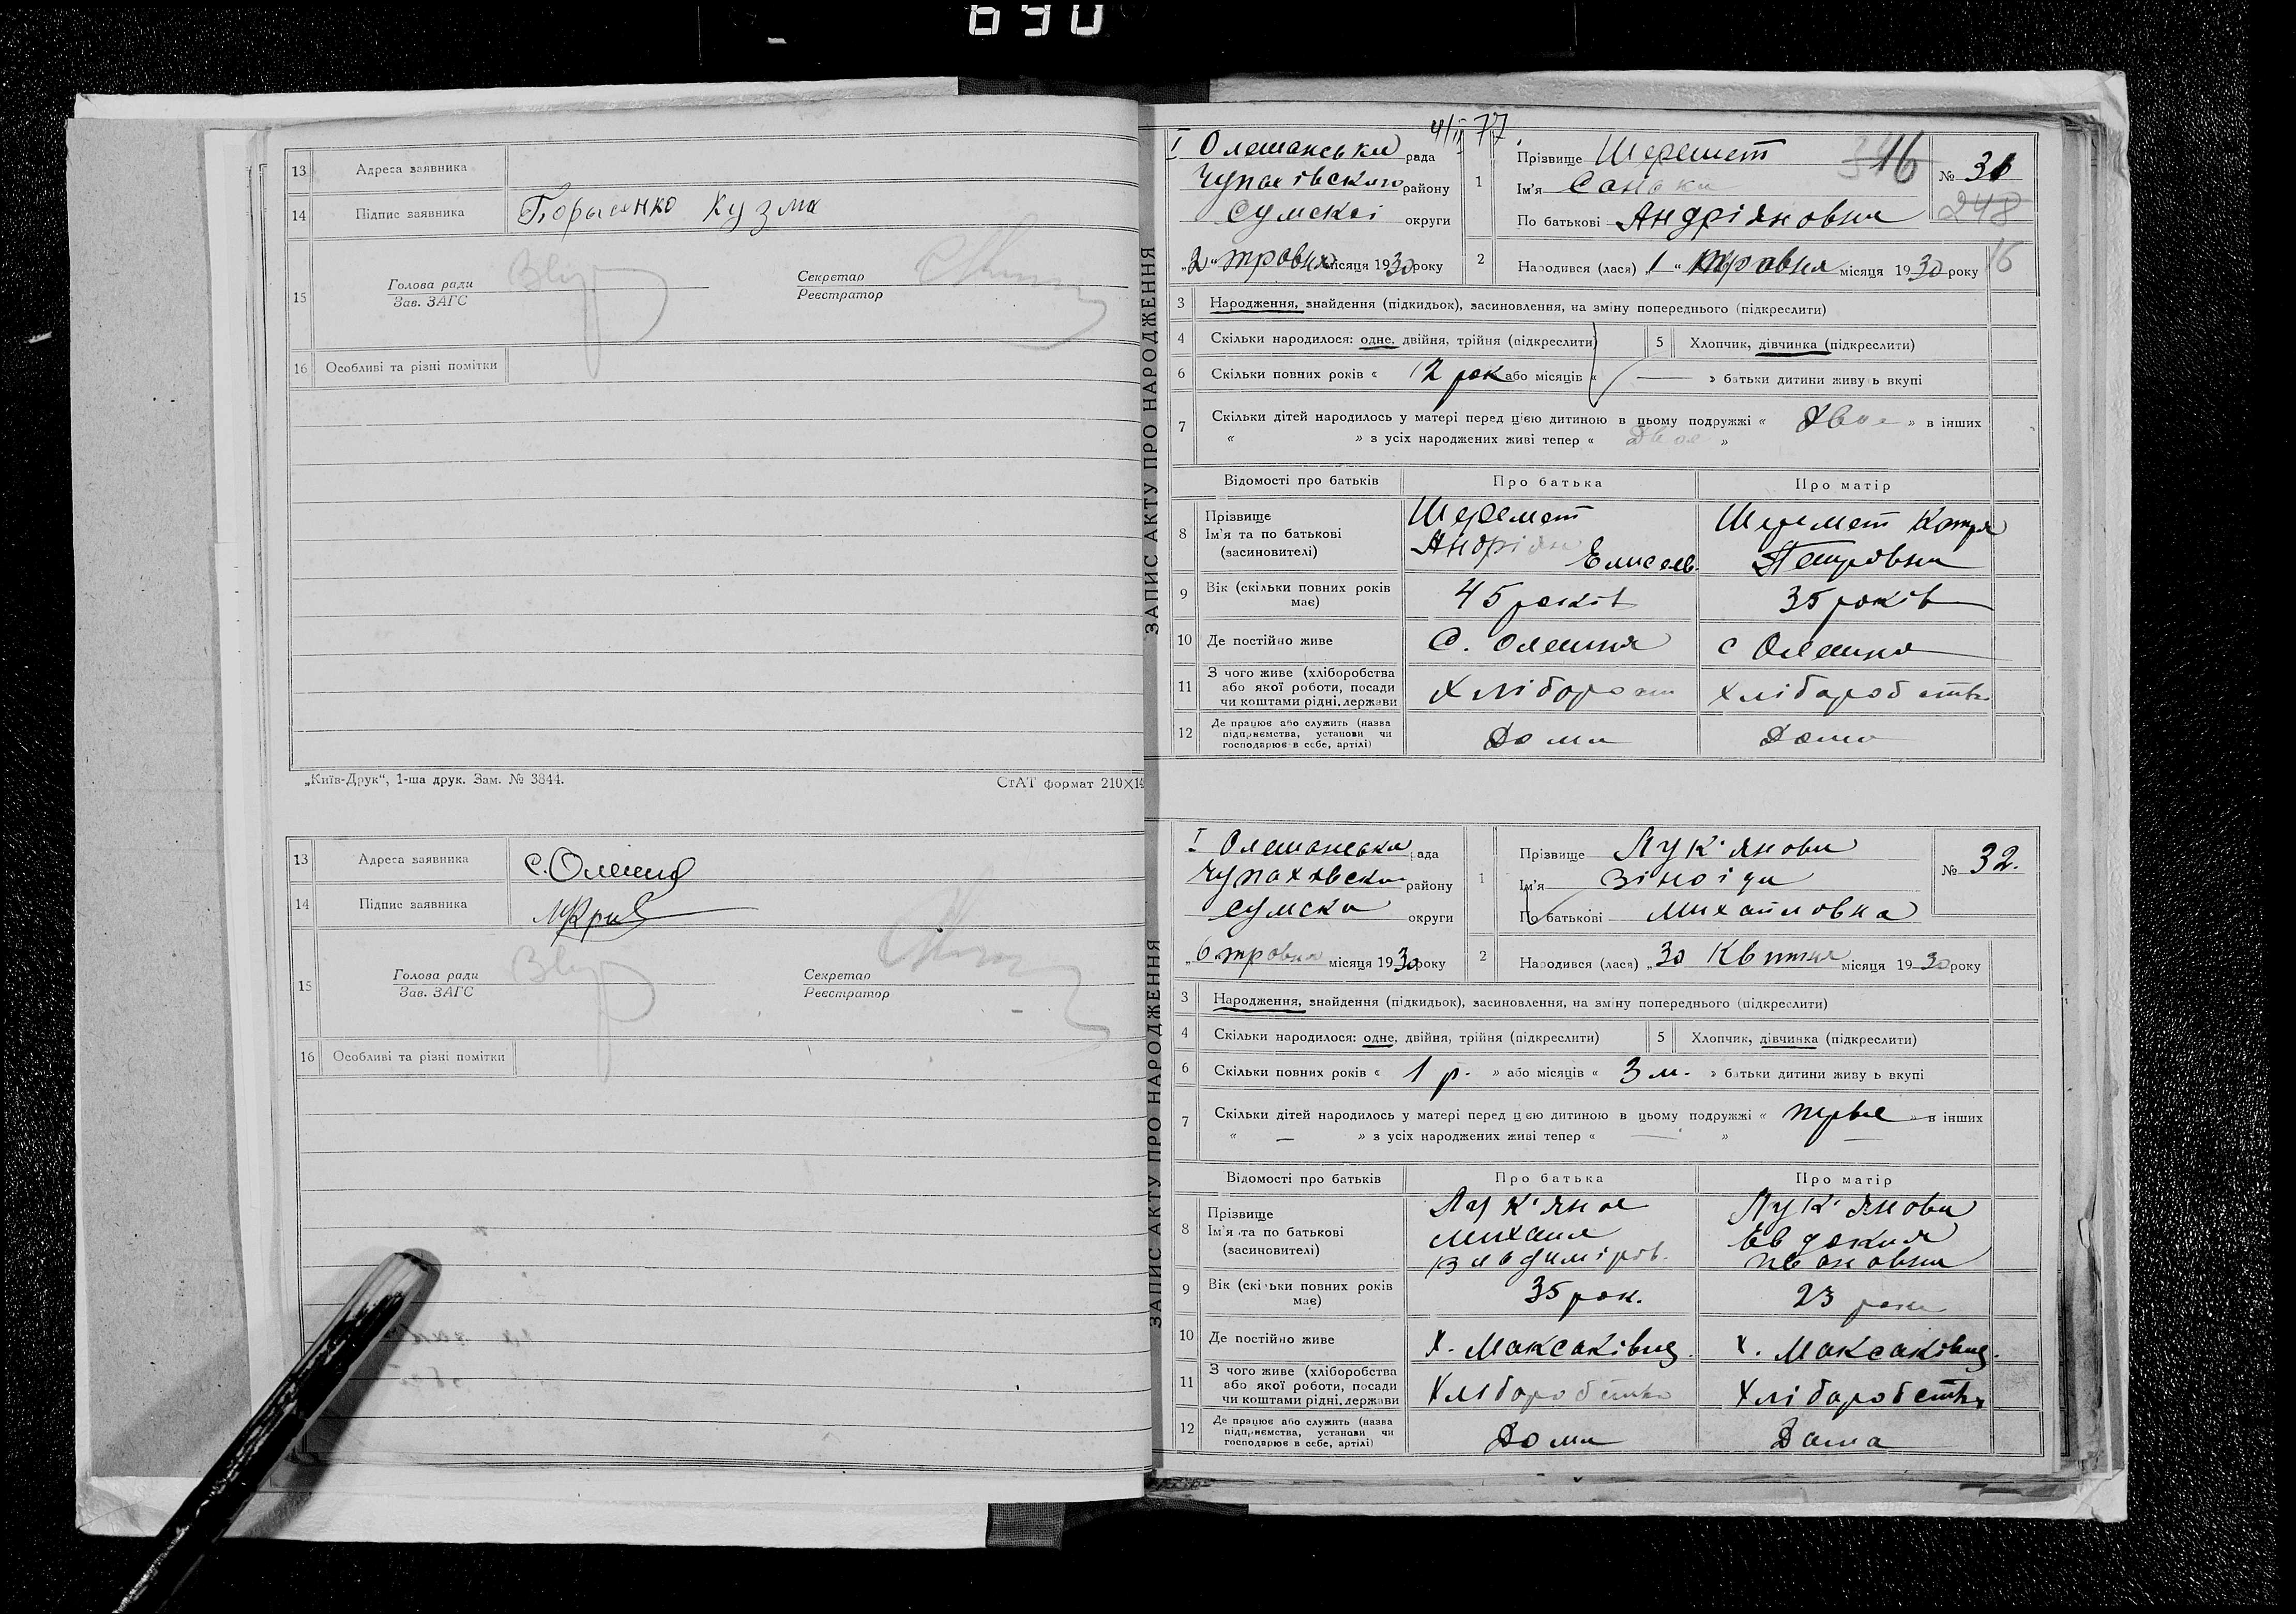 690
13 Адреса заявника
14 Підпис заявника Борисенко Кузма
15 Голова ради Секретар
Зав. ЗАГС Реєстратор
16 Особливі та різні помітки
„Київ-Друк“, 1-ша друк. Зам. № 3844. СтАТ формат 210×14
13 Адреса заявника с. Олешня
14 Підпис заявника
15 Голова ради Секретар
Зав. ЗАГС Реєстратор
16 Особливі та різні помітки
ЗАПИС АКТУ ПРО НАРОДЖЕННЯ
77
І Олешанська рада
Чупахівського району
Сумскої округи
„2“ травня місяця 1930 року
1 Прізвище Шеремет
Ім'я
По батькові Андріяновна
16
№ 31
248
2 Народився (лася) „1“ травня місяця 1930 року
16
3 Народження, знайдення (підкидьок), засиновлення, на зміну попереднього (підкреслити)
4 Скільки народилося: одне, двійня, трійня (підкреслити) 5 Хлопчик, дівчинка (підкреслити)
6 Скільки повних років « 12 рок або місяців « — » батьки дитини живуть вкупі
7 Скільки дітей народилось у матері перед цією дитиною в цьому подружжі « Двоє » в інших
« » з усіх народжених живі тепер « Двоє »
Відомості про батьків Про батька Про матір
8 Прізвище Ім'я та по батькові (засновителі)
Шеремет Андріян Елисеев.
Шеремет Катря Петровна
9 Вік (скільки повних років має) 45 років 35 років
10 Де постійно живе С. Олешня с Олешня
11 З чого живе (хліборобства або якої роботи, посади чи коштами рідні, держави Хлібороб Хліборобство
12 Де працює або служить (назва підприємства, установи чи господарює в себе, артілі) Дома Дома
ЗАПИС АКТУ ПРО НАРОДЖЕННЯ
І Олешанська рада
Чупахівска району
Сумска округи
„6 травня місяця 1930 року
1 Прізвище Лук'янова
Ім'я Зіноіда
По батькові Михайловна
№ 32.
2 Народився (лася) „30 Квітня місяця 1930 року
3 Народження, знайдення (підкидьок), засиновлення, на зміну попереднього (підкреслити)
4 Скільки народилося: одне, двійня, трійня (підкреслити) 5 Хлопчик, дівчинка (підкреслити)
6 Скільки повних років « 1 р. » або місяців « 3 м. » батьки дитини живуть вкупі
7 Скільки дітей народилось у матері перед цією дитиною в цьому подружжі « перве » в інших
« — » з усіх народжених живі тепер « — » —
Відомості про батьків Про батька Про матір
8 Прізвище Ім'я та по батькові (засновителі)
Лук'янов Михаил Владиміров.
Лук'янова Евдокия Ивановна
9 Вік (скільки повних років має) 35 рок. 23 роки
10 Де постійно живе Х. Максаківщ. Х. Максаківщ.
11 З чого живе (хліборобства або якої роботи, посади чи коштами рідні, держави Хліборобство Хліборобство
12 Де працює або служить (назва підприємства, установи чи господарює в себе, артілі) Дома Дома